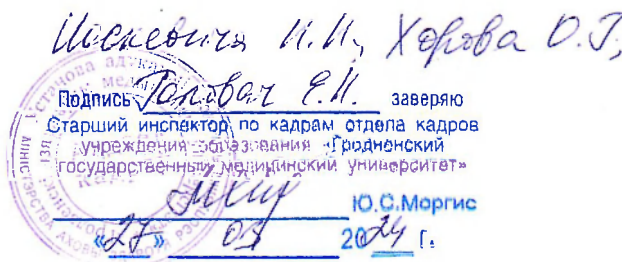 Иоскевича Н.Н., Хорова О.Г.,
Подпись Головач Е.Н. заверяю
Старший инспектор по кадрам отдела кадров
учреждения образования «Гродненский
государственный медицинский университет»
Ю.С.Моргис
«27» 05 2024 г.